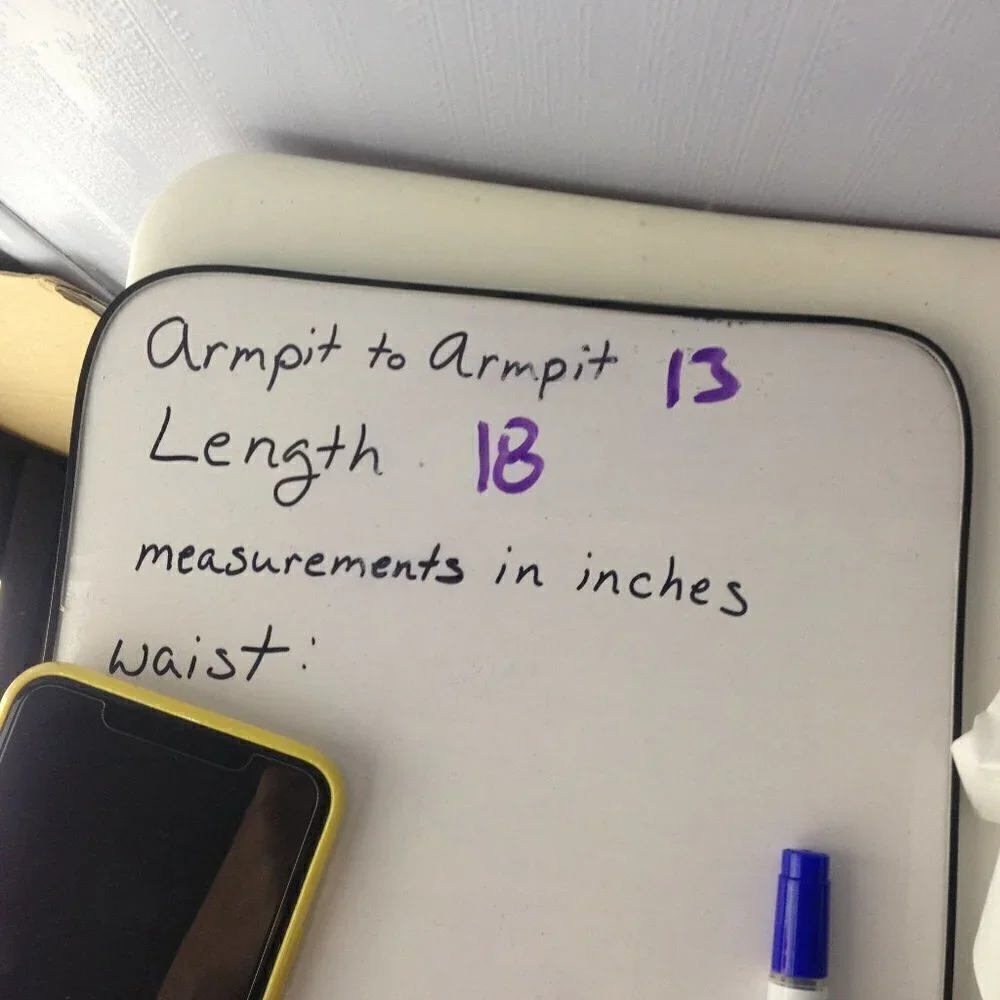 Armpit to Armpit 13
Length 18
measurements in inches
waist: